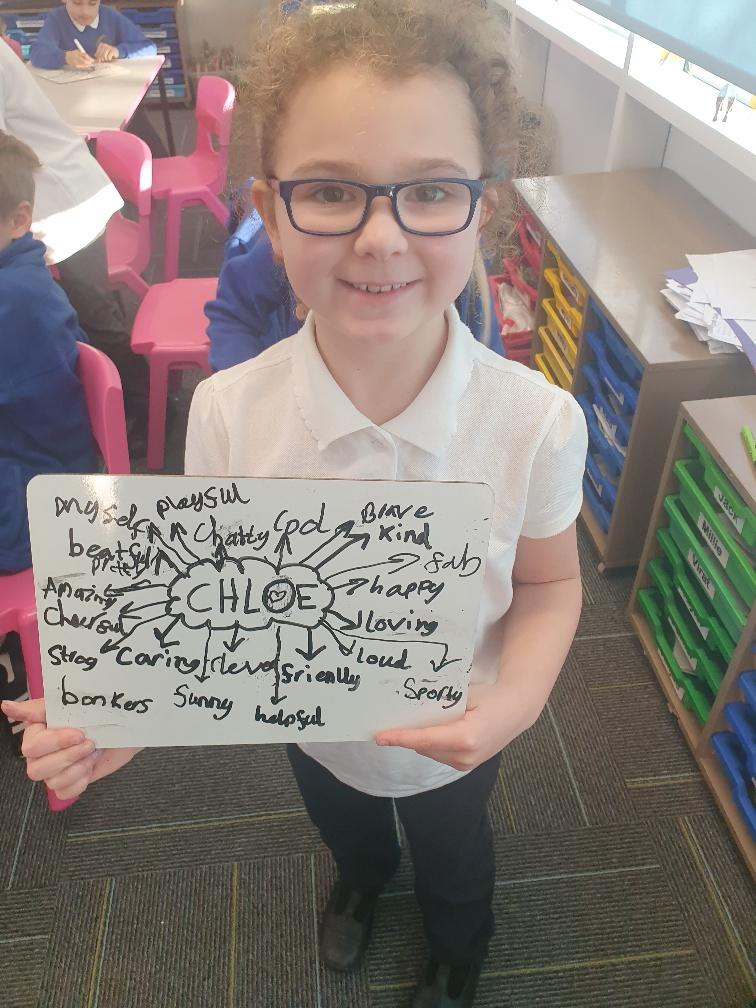 myself playful
chatty
Cool
Brave
Kind
fab
Amazing
happy
Cheerful
CHLOE
loving
Strog
Caring
clever
friendly
loud
Sporty
bonkers
Sunny
helpful
Jack
Millie